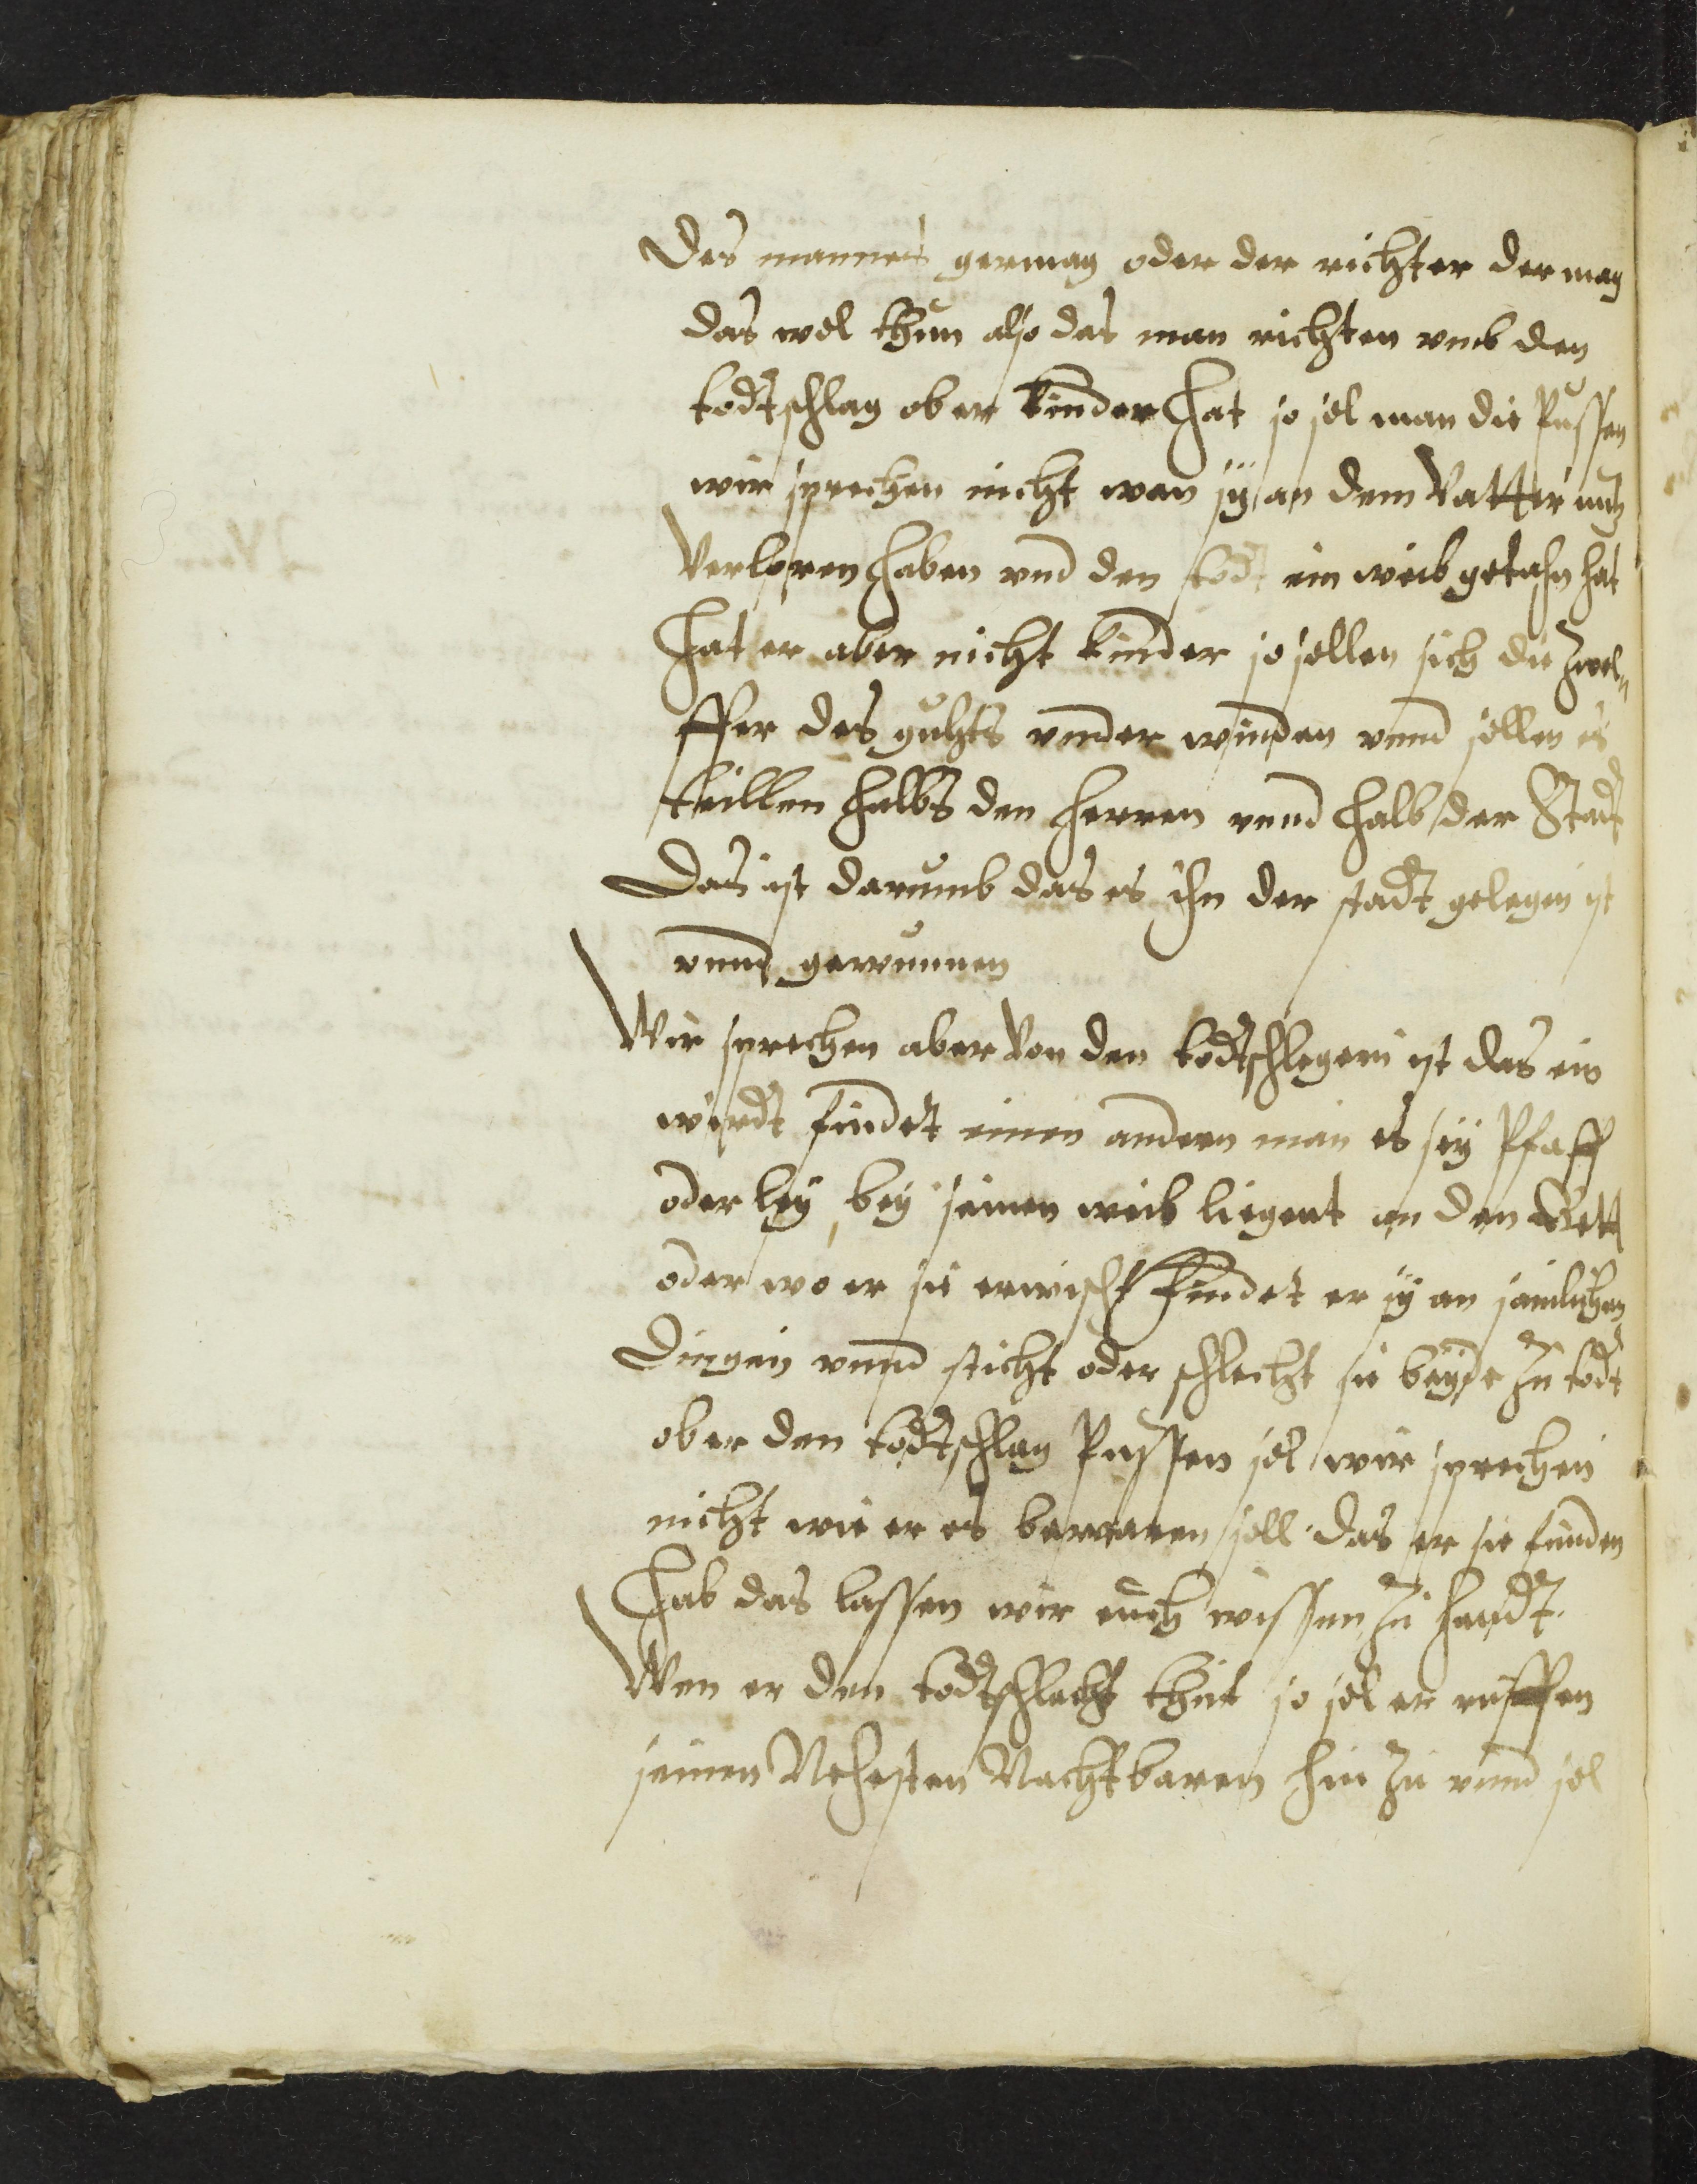 Des mannes germag oder der richter der mag
das wol thun also das man richten vmb den
todtschlag ob er kinder hat so sol man die Pussen
wir sprechen nicht wan sy an dem Vatter nutz
Verlohren haben vnd den todt ein weib getahn hat
Hat er aber nicht kinder so sollen sich die Zwel„
ffer des guhts vnder winden vnnd sollen es
theillen halbs den herren vnnd halb der Stadt
Das ist darumb das es ihn der stadt gelegen ist
vnnd gewunnen
Wir sprechen aber Von den todtschlegern ist das ein
wirdt findet einen andern man es sey Pfaff
oder ley, bey seinen weib liegent an den Bett
oder wo er sie erwischt findet er sy an sämlichen
Dingen vnnd sticht oder schlecht sie beyde zu todt
ob er den todtschlag Pussen sol wir sprechen
nicht wie er es bewaren soll das er sie funden
Hab das lassen wir euch wissen zu handt.
Wen er den todtschlacht thut so sol er ruffen
seinen Nehesten Nachtbaren hin zu vnnd sol